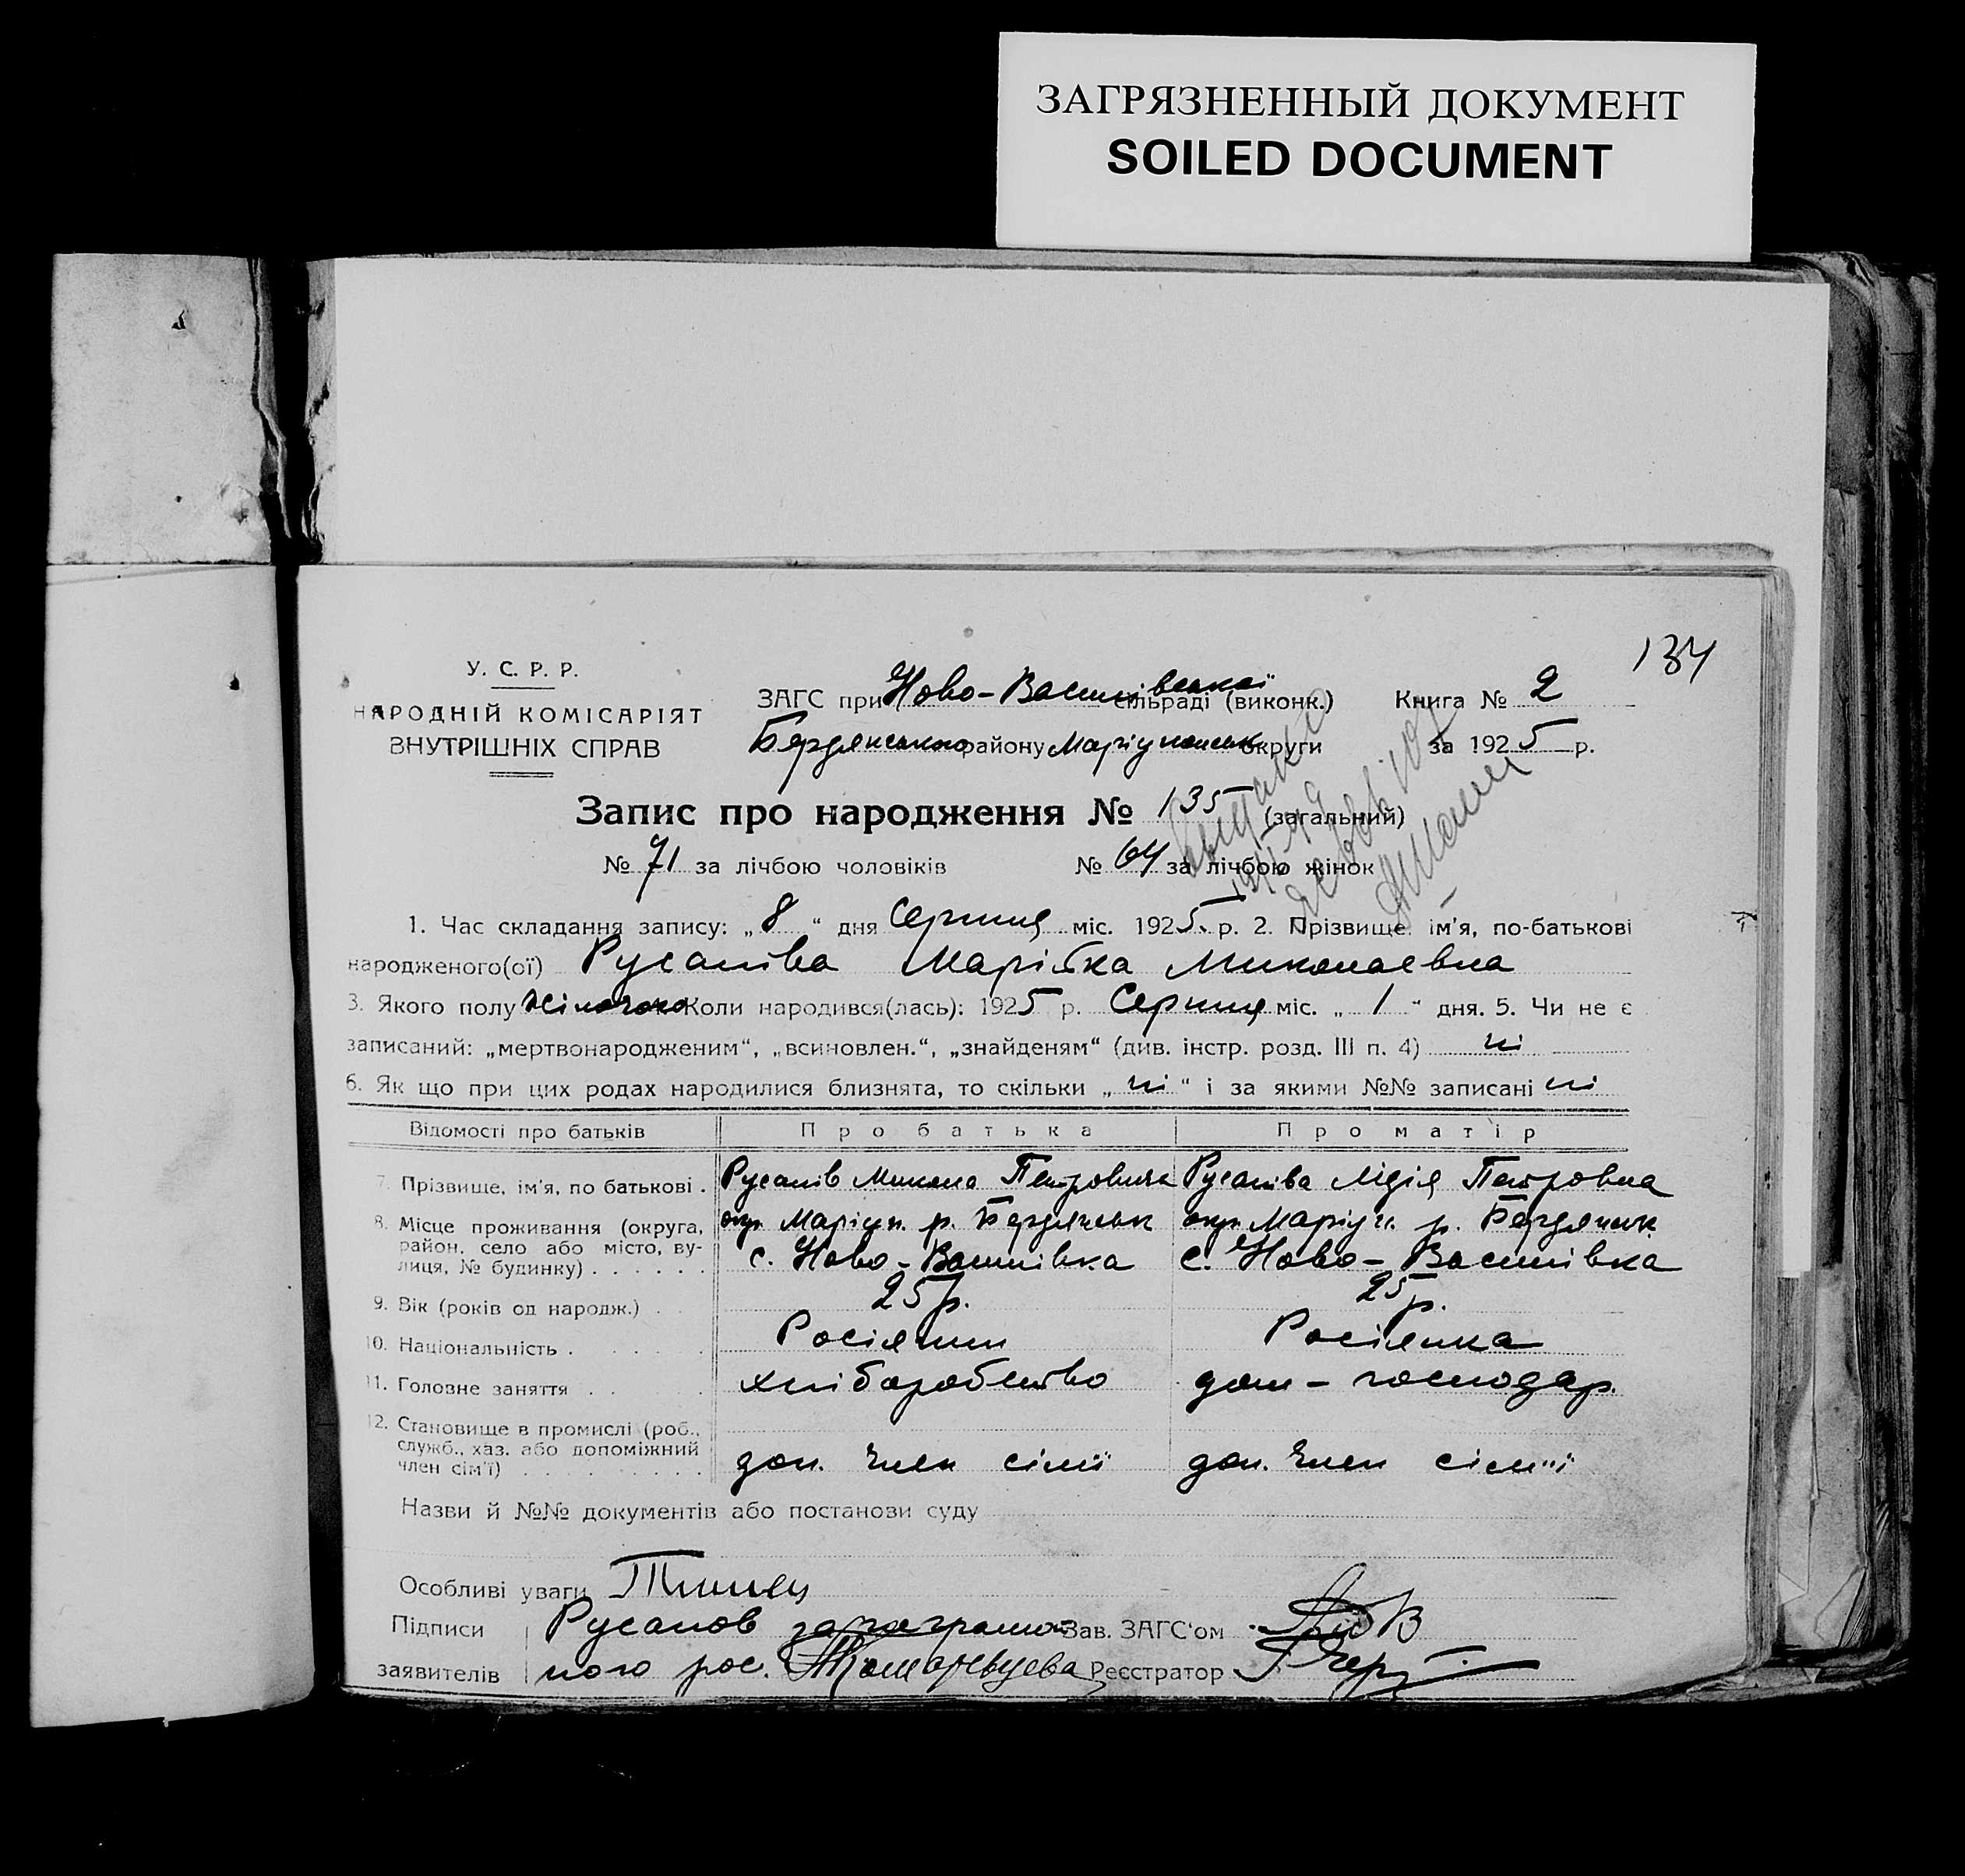 ЗАГРЯЗНЕННЫЙ ДОКУМЕНТ
SOILED DOCUMENT
134
У. С. Р. Р.
НАРОДНІЙ КОМІСАРІЯТ
ВНУТРІШНІХ СПРАВ
ЗАГС при Ново-Василівської сільраді (виконк.)
Бердянського району Маріупольськ округи
Книга № 2
за 1925 р.
Запис про народження № 135 (загальний)
№ 71 за лічбою чоловіків № 64 за лічбою жінок
1. Час складання запису: „8“ дня Серпня міс. 1925 р. 2. Прізвище ім'я, по-батькові
народженого(ої) Русанова Марійка Миколаевна
3. Якого полу жіночого Коли народився(лась): 1925 р. Серпня міс. „1“ дня. 5. Чи не є
записаний: „мертвонародженим“, „всиновлен.“, „знайденям“ (див. інстр. розд. III п. 4) ні
6. Як що при цих родах народилися близнята, то скільки „ні“ і за якими №№ записані ні
Відомості про батьків Про батька Про матір
7. Прізвище, ім'я, по батькові . Русанів Микола Петровича Русанова Лідія Петровна
8. Місце проживання (округа, окр. Маріуп. р. Бердянськ окр. Маріуп. р. Бердянськ
район, село або місто, ву-
лиця, № будинку) . . . . . . с. Ново-Василівка с. Ново-Василівка
9. Вік (років од народж.) . 25 р. 25 р.
10. Національність . . . . . Росіянин Росіянка
11. Головне заняття . . . хліборобство дом-господар.
12. Становище в промислі (роб.,
служб., хаз. або допоміжний
член сім'ї) . . . . . . . . . доп. член сімії доп. член сім'ї
Назви й №№ документів або постанови суду
Особливі уваги
Підписи Русанов за неграмот Зав. ЗАГС'ом
заявителів ного рос. Реєстратор